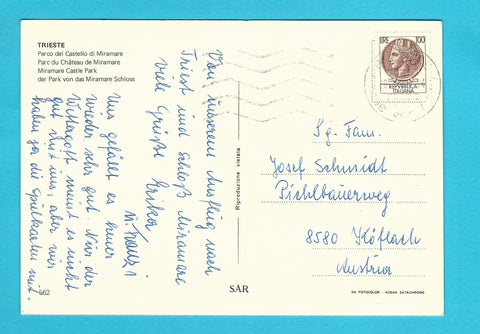 TRIESTE
Parco del Castello di Miramare
Parc du Château de Miramare
Miramare Castle Park
der Park von das Miramare Schloss
LIRE 100
REPVBBLICA
ITALIANA
Von unserem Ausflug nach
Triest und Schloß Miramare
viele Grüße Erika
u. Franzi
Uns gefällt es heuer
wieder sehr gut. Nur der
Wettergott meint es nicht
gut mit uns, aber wir
haben ja die Spielkarten mit.
Sg. Fam.
Josef Schmidt
Pichlbauerweg
8580 Köflach
Austria
Riproduzione vietata
662
SAR
DA FOTOCOLOR - KODAK EKTACHROME